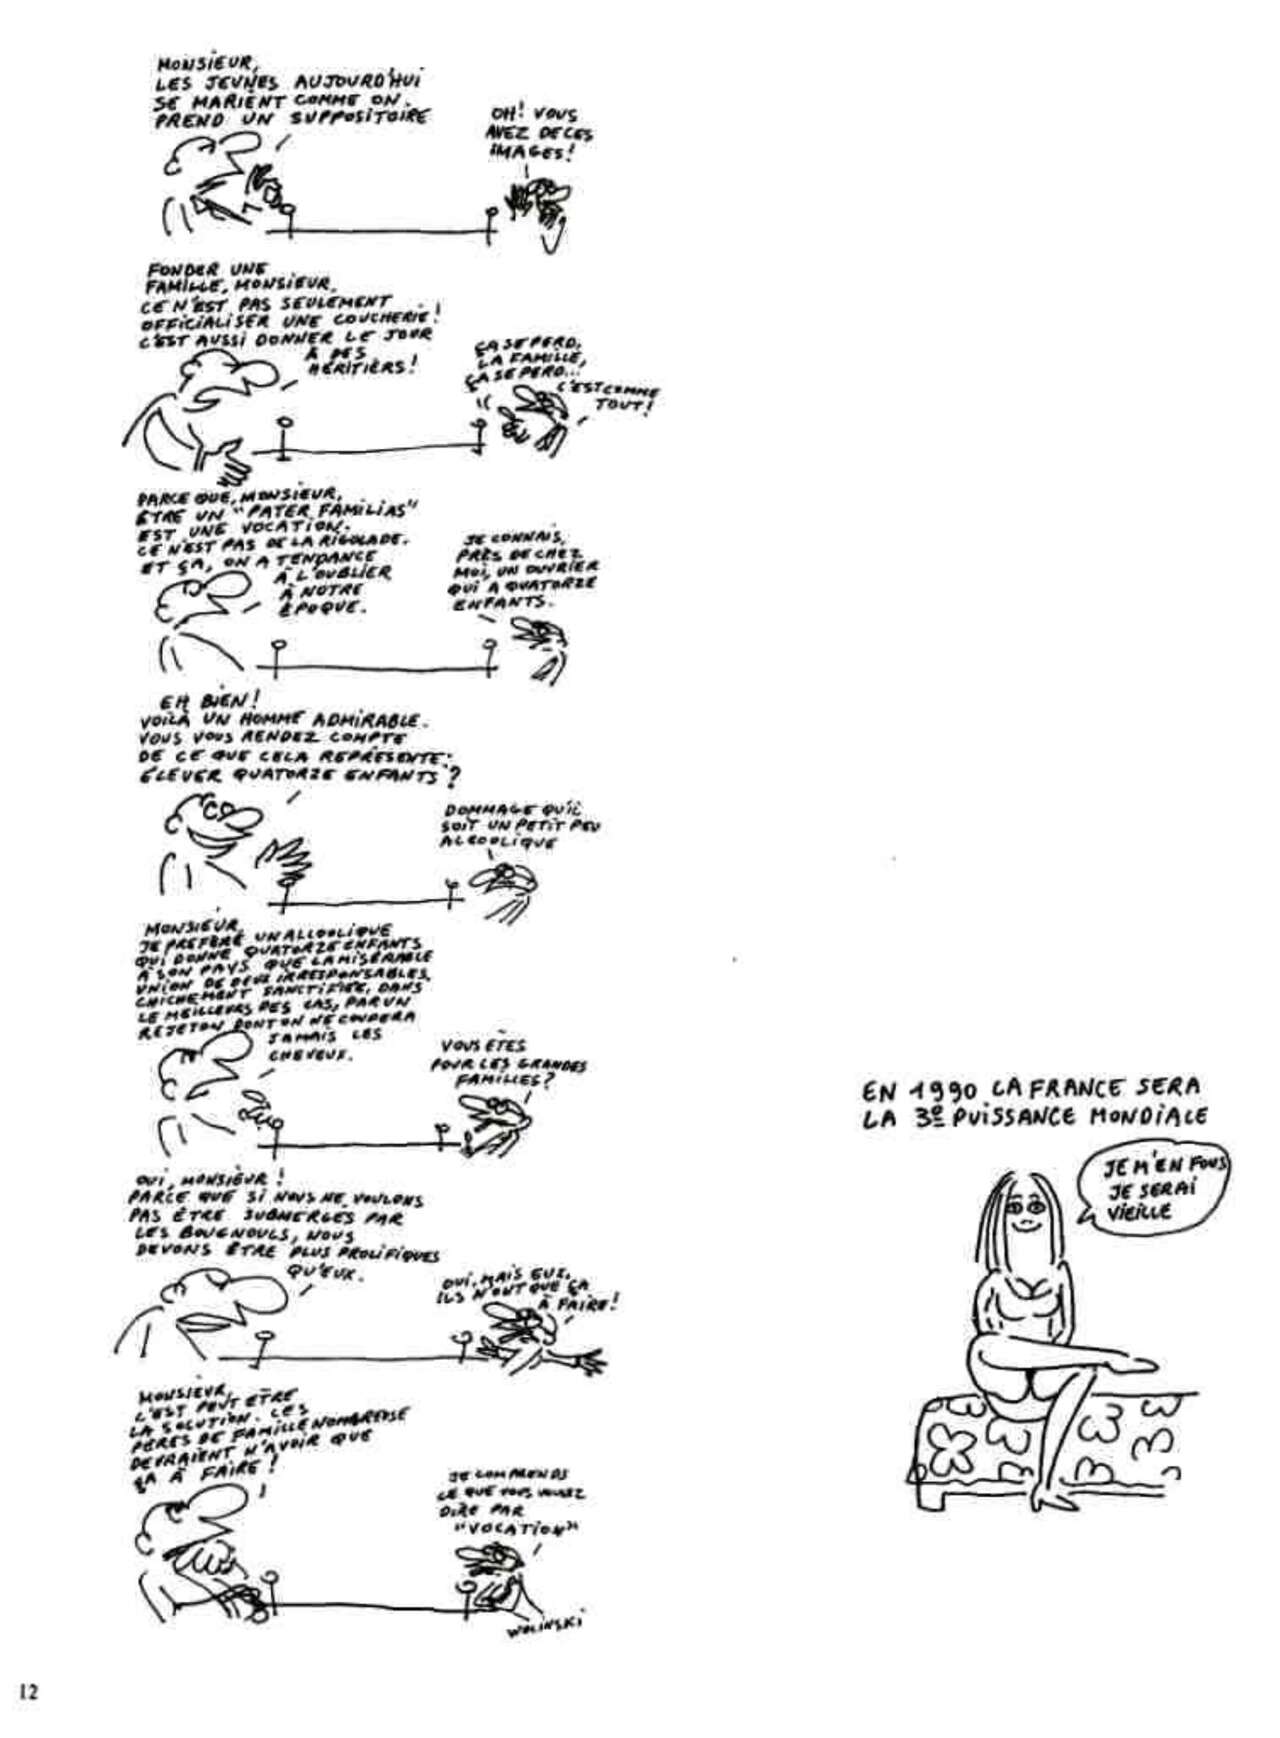 MONSIEUR,
LES JEUNES AUJOURD'HUI
SE MARIENT COMME ON
PREND UN SUPPOSITOIRE
OH! VOUS
AVEZ DE CES
IMAGES!
FONDER UNE
FAMILLE, MONSIEUR,
CE N'EST PAS SEULEMENT
OFFICIALISER UNE COUCHERIE!
C'EST AUSSI DONNER LE JOUR
À DES
HÉRITIERS!
ÇA SE PERD,
LA FAMILLE,
ÇA SE PERD...
C'EST COMME
TOUT!
PARCE QUE, MONSIEUR,
ÊTRE UN "PATER FAMILIAS"
EST UNE VOCATION.
CE N'EST PAS DE LA RIGOLADE.
ET ÇA, ON A TENDANCE
À L'OUBLIER
À NOTRE
ÉPOQUE.
JE CONNAIS,
PRÈS DE CHEZ
MOI, UN OUVRIER
QUI A QUATORZE
ENFANTS.
EH BIEN!
VOILÀ UN HOMME ADMIRABLE.
VOUS VOUS RENDEZ COMPTE
DE CE QUE CELA REPRÉSENTE:
ÉLEVER QUATORZE ENFANTS?
DOMMAGE QU'IL
SOIT UN PETIT PEU
ALCOOLIQUE
MONSIEUR,
JE PRÉFÈRE UN ALCOOLIQUE
QUI DONNE QUATORZE ENFANTS
À SON PAYS QUE LA MISÉRABLE
UNION DE DEUX IRRESPONSABLES,
CHICHEMENT SANCTIFIÉE, DANS
LE MEILLEURS DES CAS, PAR UN
REJETON DONT ON NE COUPERA
JAMAIS LES
CHEVEUX.
VOUS ÊTES
POUR LES GRANDES
FAMILLES?
OUI, MONSIEUR!
PARCE QUE SI NOUS NE VOULONS
PAS ÊTRE SUBMERGÉS PAR
LES BOUGNOULS, NOUS
DEVONS ÊTRE PLUS PROLIFIQUES
QU'EUX.
OUI, MAIS EUX,
ILS N'ONT QUE ÇA
À FAIRE!
MONSIEUR,
C'EST PEUT ÊTRE
LA SOLUTION. LES
PÈRES DE FAMILLE NOMBREUSE
DEVRAIENT N'AVOIR QUE
ÇA À FAIRE!
JE COMPRENDS
CE QUE VOUS VOULEZ
DIRE PAR
"VOCATION"
WOLINSKI
EN 1990 LA FRANCE SERA
LA 3e PUISSANCE MONDIALE
JE M'EN FOUS
JE SERAI
VIEILLE
12